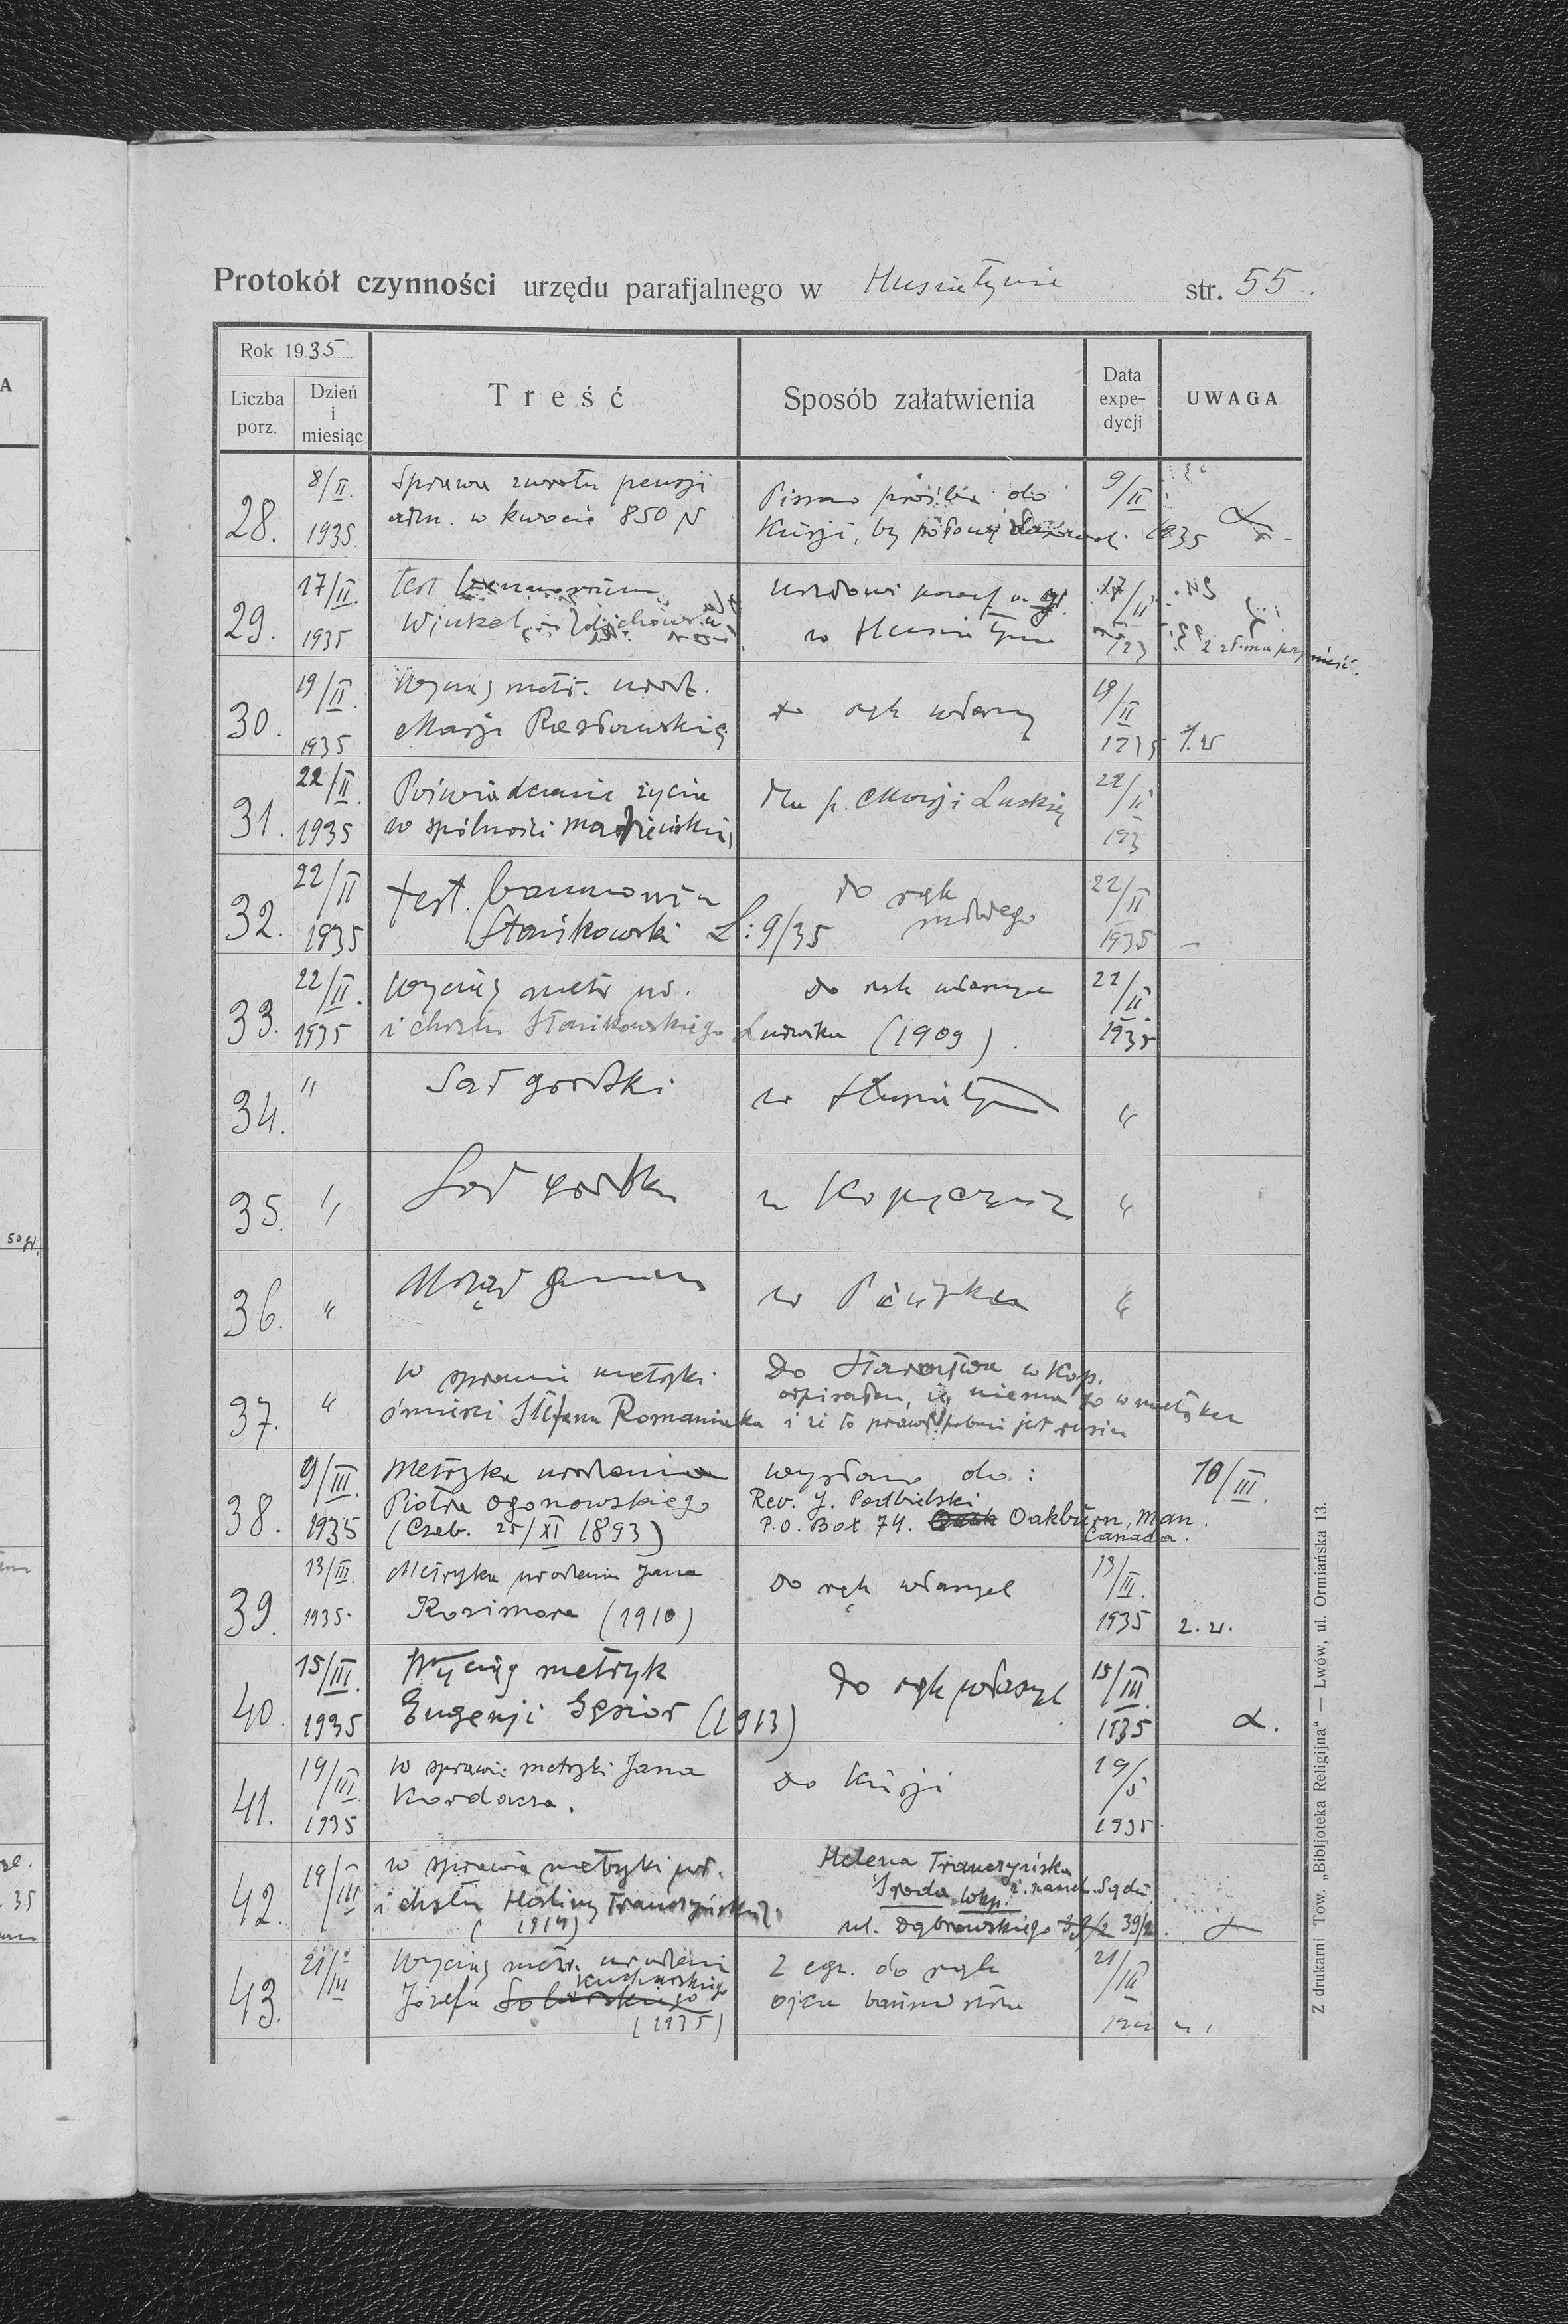 Protokół czynności urzędu parafjalnego w Husiatynie str. 55.
Rok 1935
Liczba porz.
Dzień i miesiąc
Treść
Sposób załatwienia
Data expedycji
UWAGA
28.
8/II. 1935
Sprawa zwrotu pensji
adm. w kwocie 850
Pismo prośba do
Kurji, by połowę
9/II 1935
29.
17/II. 1935
test
Winkel
w Husiatynie
17/II
2 zł. ma przynieść.
30.
19/II. 1935
Wyciąg metr. urodz.
Marji
do rąk własnych
19/II 1935
31.
22/II. 1935
Poświadczenie życia
w spólności małżeńskiej
Dla p. Marji Luskiej
22/II 193
32.
22/II 1935
test. bannorum
Stańkowski L: 9/35
do rąk
młodego
22/II 1935
33.
22/II. 1935
Wyciąg metr ur.
i chrztu Stańkowskiego Ludwika (1909).
do rąk własnych
22/II. 1935
34.
"
Sąd grodzki
w Husiatynie
"
35.
"
Sąd grodzki
w Kopyczyńc
"
36.
"
Urząd gminny
w
"
37.
"
W sprawie metryki
śmierci Stefana Romaniuka
Do Starostwa w Kop.
odpisałem, iż niema go w metrykach
i że to prawdopodobni jest rusin
38.
9/III. 1935
Metryka urodzenia
Piotra Ogonowskiego
(Czeb. 25/XI 1893)
Wysłano do:
Rev. J. Podbielski
P.O. Box 74. Oakburn, Man.
Canada.
10/III.
39.
13/III. 1935.
Metryka urodzenia Jana
(1910)
Do rąk własnych
13/III. 1935
40.
15/III. 1935
Wyciąg metryk
Eugenji Gąsior (1913)
Do rąk własnych
15/III. 1935
α.
41.
19/III. 1935
W sprawie metryki Jana
Kordasza.
Do Kurji
19/5 1935.
42.
19/III
W sprawie metryki ur.
i chrztu Haliny Tranczyńskiej.
(1914)
Helena Tranczyńska
ż. nacz. Sądu.
Środa wkp.
ul. Dąbrowskiego 39/2 39/2.
43.
21/III
Wyciąg metr. urodzenia
Kucharskiego
Józefa
(1935)
2 egz. do rąk
ojca
21/III
Z drukarni Tow. „Bibljoteka Religijna“ — Lwów, ul. Ormiańska 13.